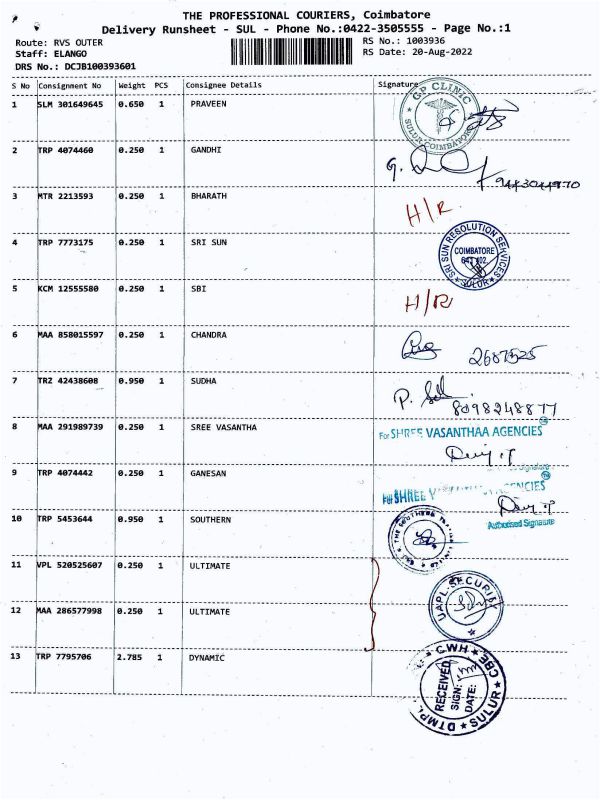 THE PROFESSIONAL COURIERS, Coimbatore
Delivery Runsheet - SUL - Phone No.:0422-3505555 - Page No.:1
Route: RVS OUTER RS No.: 1003936
Staff: ELANGO RS Date: 20-Aug-2022
DRS No.: DCJB100393601
S No Consignment No Weight PCS Consignee Details Signature
1 SLM 301649645 0.650 1 PRAVEEN
GP CLINIC
SULUR COIMBATORE
2 TRP 4074460 0.250 1 GANDHI
9443044970
3 MTR 2213593 0.250 1 BHARATH H/R
4 TRP 7773175 0.250 1 SRI SUN
SRI SUN RESOLUTION SERVICES
COIMBATORE
641 402
SULUR
5 KCM 12555580 0.250 1 SBI H/R
6 MAA 858015597 0.250 1 CHANDRA
2687525
7 TRZ 42438608 0.950 1 SUDHA
8098248877
8 MAA 291989739 0.250 1 SREE VASANTHA
For SHREE VASANTHAA AGENCIES
9 TRP 4074442 0.250 1 GANESAN
For SHREE AGENCIES
Authorised Signature
10 TRP 5453644 0.950 1 SOUTHERN
THE SOUTHERN
11 VPL 520525607 0.250 1 ULTIMATE
UAPL-SECURITY
12 MAA 286577998 0.250 1 ULTIMATE
13 TRP 7795706 2.785 1 DYNAMIC
DTMPL CWH CBE SULUR
RECEIVED
SIGN:
DATE: